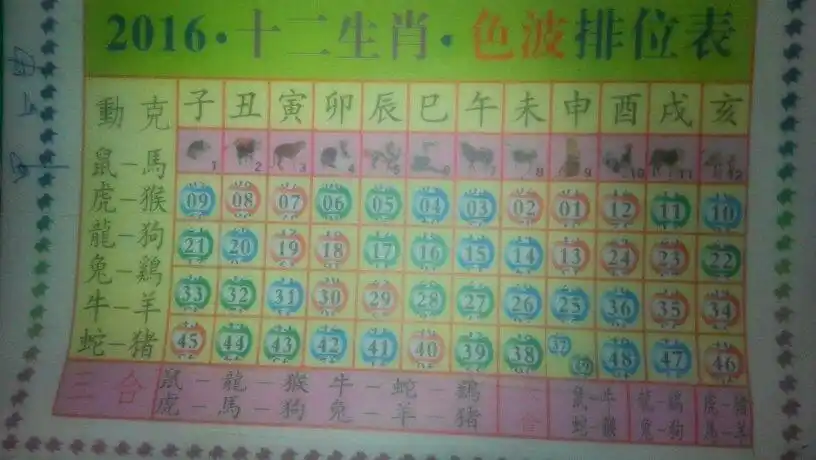 2016·十二生肖·色波排位表
動 克 子 丑 寅 卯 辰 巳 午 未 申 酉 戌 亥
1 2 3 4 5 6 7 8 9 10 11 12
鼠－馬
虎－猴 09 08 07 06 05 04 03 02 01 12 11 10
龍－狗 21 20 19 18 17 16 15 14 13 24 23 22
兔－鷄
牛－羊 33 32 31 30 29 28 27 26 25 36 35 34
蛇－猪 45 44 43 42 41 40 39 38 37 49 48 47 46
三合 鼠－龍－猴 牛－蛇－鷄 鼠－牛 龍－鷄 虎－猪
虎－馬－狗 兔－羊－猪 合 蛇－猴 兔－狗 馬－羊